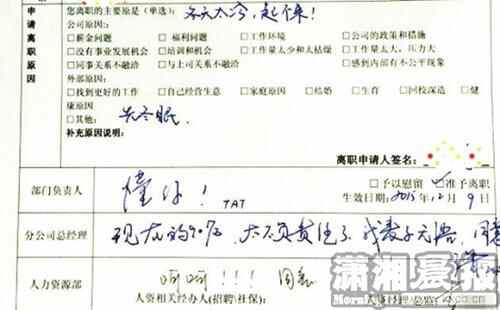 您离职的主要原是(单选): 冬天太冷,起不来!
公司原因:
□薪金问题 □福利问题 □工作环境 □公司的政策和措施
□没有事业发展机会 □培训和机会 □工作量太少和太枯燥 □工作量太大,压力大
□同事关系不融洽 □与上司关系不融洽 □感到内部有不公平现象
外部原因:
□找到更好的工作 □自己经营生意 □家庭原因 □结婚 □生育 □回校深造 □健
康原因
□其他: 先冬眠
补充原因说明:
申请离职原因
离职申请人签名:
部门负责人 懂你! TAT □予以慰留 □准予离职
生效日期: 2015.12月9日
分公司总经理 现在的90后,太不负责任了
人力资源部 呵呵!!! 同意
人资相关经办人(招聘\社保):
潇湘晨报